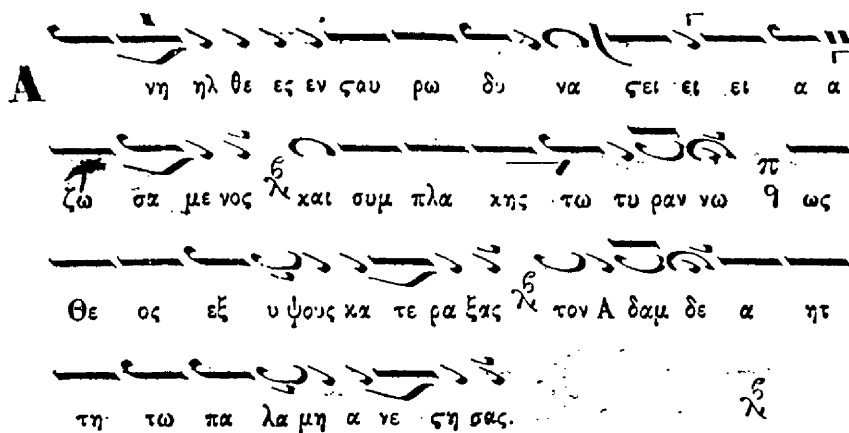 Α νη ηλ θε ες εν ϛαυ ρω δυ να ϛει ει ει α α
ζω σα με νος και συμ πλα κης τω τυ ραν νω π ϥ ως
Θε ος εξ υ ψους κα τε ρα ξας τον Α δαμ δε α ητ
τη τω πα λα μη α νε ϛη σας.